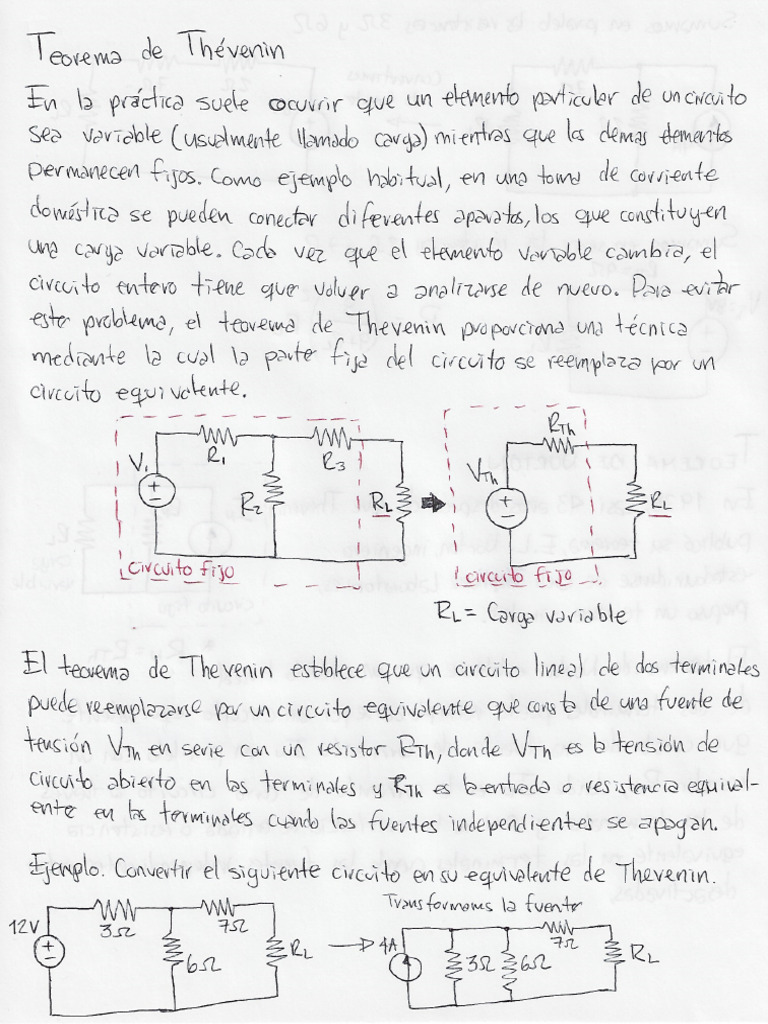 Teorema de Thévenin
En la práctica suele ocurrir que un elemento particular de un circuito
sea variable (usualmente llamado carga) mientras que los demas elementos
permanecen fijos. Como ejemplo habitual, en una toma de corriente
doméstica se pueden conectar diferentes aparatos, los que constituyen
una carga variable. Cada vez que el elemento variable cambia, el
circuito entero tiene que volver a analizarse de nuevo. Para evitar
este problema, el teorema de Thevenin proporciona una técnica
mediante la cual la parte fija del circuito se reemplaza por un
circuito equivalente.
V1 R1 R2 R3 RL
Circuito fijo
VTh RTh RL
circuito fijo
RL = Carga variable
El teorema de Thevenin establece que un circuito lineal de dos terminales
puede reemplazarse por un circuito equivalente que consta de una fuente de
tensión VTh en serie con un resistor RTh, donde VTh es la tensión de
circuito abierto en las terminales y RTh es la entrada o resistencia equival-
ente en las terminales cuando las fuentes independientes se apagan.
Ejemplo. Convertir el siguiente circuito en su equivalente de Thevenin.
12V 3Ω 6Ω 7Ω RL
Transformamos la fuente
4A 3Ω 6Ω 7Ω RL